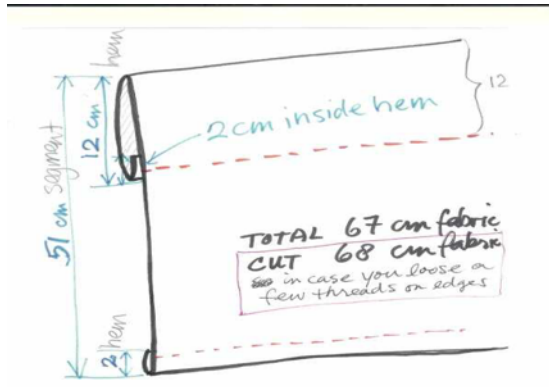 hem
12 cm
51 cm segment
2 hem
12
2cm inside hem
TOTAL 67 cm fabric
CUT 68 cm fabric
in case you loose a
few threads on edges